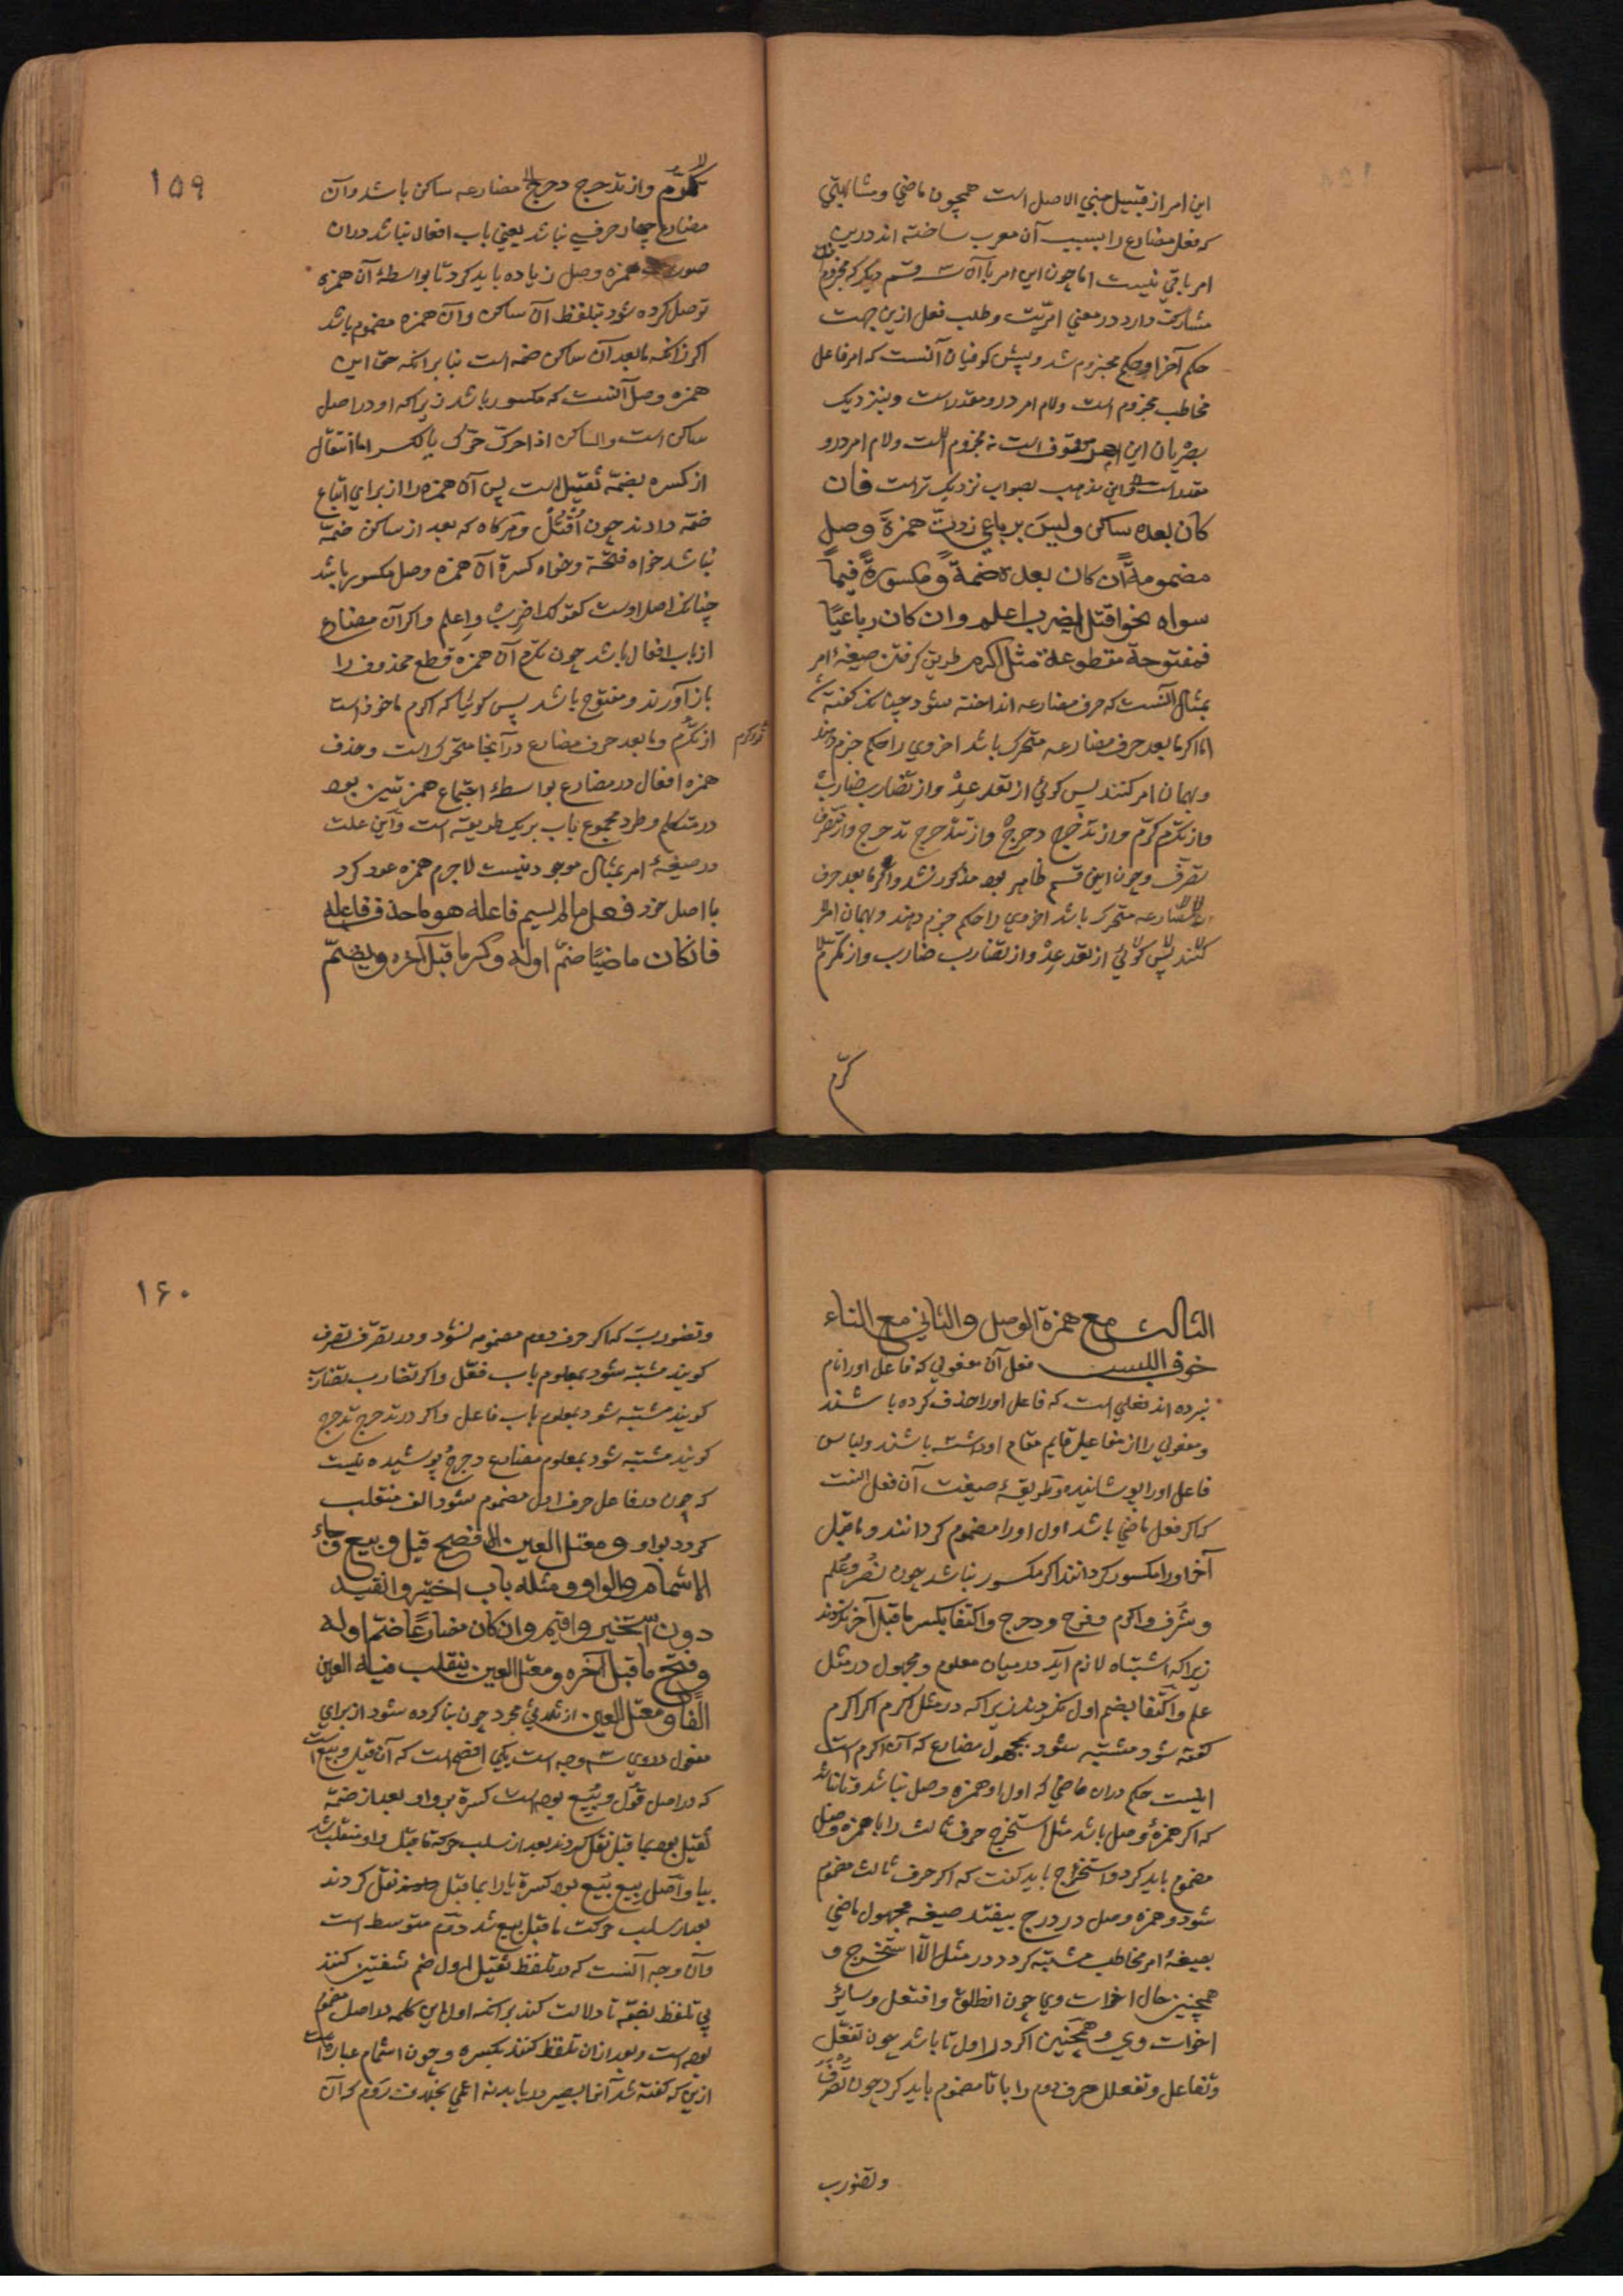 این امر از قبیل مبنی الاصل است همچون ماضی و مشابهتی
که فعل مضارع را بسبب آن معرب ساخته اند درین
امر باقی نیست اما چون این امر با آن قسم دیگر که مجزوم
مشارکت دارد در معنی امریّت و طلب فعل ازین جهت
حکم آخر او حکم مجزوم شد و پیش کوفیان آنست که امر فاعل
مخاطب مجزوم است و لام امر درو مقدر است و بنزدیک
بصریان این امر موقوف است نه مجزوم است و لام امر درو
مقدر است و این مذهب بصواب نزدیک تر است فان
کان بعده ساکن ولیس برباعی زدت همزة وصل
مضمومة ان کان بعده ضمة و مکسورة فیما
سواه نحو اقتل اضرب اعلم وان کان رباعیًا
فمفتوحة مقطوعة مثل اکرم طریق کرفتن صیغهٔ امر
بمثال آنست که حرف مضارعه انداخته شود چنانک کفته شد
اما اکر مابعد حرف مضارعه متحرک باشد اخر وی را حکم جزم دهند
و بهمان امر کنند پس کوئی از تعد عِدْ و از تضارب ضارب
و از تکرم کرّم و از تدحرج دحرج و از تتدحرج تدحرج و از تتصرف
تصرف و چون این قسم ظاهر بود مذکور نشد و اکر مابعد حرف
مضارعه متحرک باشد اخر وی را حکم جزم دهند و بهمان امر
کنند پس کوئی از تعد عِدْ و از تضارب ضارب و از تکرم
کرّم
۱۵۹
کرّم و از تدحرج دحرج مضارعه ساکن باشد و آن
مضارع چهار حرفی نباشد یعنی باب افعال نباشد دران
صورت همزه وصل زیاده باید کرد تا بواسطهٔ آن همزه
توصل کرده شود بتلفظ آن ساکن و آن همزه مضموم باشد
اکر زانکه مابعد آن ساکن ضمه است بنابرانکه حق این
همزه وصل آنست که مکسور باشد زیراکه او در اصل
ساکن است والساکن اذا حرک حرک بالکسر اما انتقال
از کسره بضمّه ثقیل است پس آن همزه را از برای اتباع
ضمّه دادند چون اُقتُلْ و هرکاه که بعد از ساکن ضمّه
نباشد خواه فتحة و خواه کسرة آن همزه وصل مکسور باشد
چنانک اصل اوست کقولک اضرب و اعلم و اکر آن مضارع
از باب افعال باشد چون تکرم آن همزه قطع محذوف را
باز آورند و مفتوح باشد پس کوئیا که اکرم ماخوذ است
از تکرم و مابعد حرف مضارع در آنجا متحرک است و حذف
همزه افعال در مضارع بواسطهٔ اجتماع همزتین بود
در متکلم و طرد مجموع باب بریک طریقه است و این علت
در صیغهٔ امر بمثال موجود نیست لاجرم همزه عود کرد
با اصل خود فعل ما لم یسم فاعله هو ما حذف فاعله
فان کان ماضیًا ضمّ اوله و کسر ما قبل آخره و یضمّ
الثالث مع همزة الوصل والثانی مع التاء
خوف اللبس فعل آن مفعولی که فاعل او را نام
نبرده اند فعلی است که فاعل او را حذف کرده باشند
و مفعولی را از مفاعیل قایم مقام او داشته باشند و لباس
فاعل او را پوشانیده و طریقهٔ صیغت آن فعل آنست
که اکر فعل ماضی باشد اول او را مضموم کردانند و ماقبل
آخر او را مکسور کردانند اکر مکسور نباشد چون نُصر و عُلم
و شرف و اکرم و فرح و دحرج و اکتفا بکسر ماقبل آخر نکردند
زیراکه اشتباه لازم آید در میان معلوم و مجهول در مثل
علم و اکتفا بضم اول نکردند زیراکه در مثل اکرم اکر اکرم
کفته شود مشتبه شود بمجهول مضارع که آن اکرم است
اینست حکم دران ماضی که اول او همزه وصل نباشد و تا نباشد
که اکر همزهٔ وصل باشد مثل استخرج حرف ثالث را با همزه وصل
مضموم باید کرد و استخرج باید کفت که اکر حرف ثالث مضموم
شود و همزه وصل در درج بیفتد صیغه مجهول ماضی
بصیغهٔ امر مخاطب مشتبه کردد در مثل الّا استخرج و
همچنین حال اخوات وی چون انطلق و افتعل و سایر
اخوات وی و همچنین اکر در اول تا باشد چون تفعّل
و تفاعل و تفعلل حرف دوم را با تا مضموم باید کرد چون تصرف
و تضورب
۱۶۰
و تضورب که اکر حرف دوم مضموم نشود و در تصرف تصرف
کویند مشتبه شود بمعلوم باب فعّل و اکر تضارب تضارب
کویند مشتبه شود بمعلوم باب فاعل و اکر در تدحرج تدحرج
کویند مشتبه شود بمعلوم مضارع دحرج پوشیده نیست
که چون در فاعل حرف اول مضموم شود الف منقلب
کردد بواو و معتل العین الافصح قیل و بیع و جاء
الاشمام والواو و مثله باب اختیر و انقید
دون استخیر و اقیم وان کان مضارعًا ضمّ اوله
و فتح ما قبل آخره و معتل العین ینقلب فیه العین
الفًا و معتل العین از ثلاثی مجرد چون بنا کرده شود از برای
مفعول در وی سه وجه است یکی افصح است که آن قیل و بیع است
که در اصل قُوِل و بُیِع بوده است کسره بر واو بعد از ضمّه
ثقیل بود بماقبل نقل کردند بعد از سلب حرکة ماقبل واو منقلب شد
بیا و اصل بیع بُیِع بود کسره یا را بماقبل نقل کردند
بعد از سلب حرکت ماقبل بیع شد دوّم متوسط است
و آن وجه آنست که در تلفظ بقیل اول ضم شفتین کنند
بی تلفظ بضمّه تا دلالت کند برانکه اول این کلمه در اصل مضموم
بوده است و بعد ازان تلفظ کنند بکسره و چون اشمام عبارت است
ازین که کفته شد آنرا بصیر دریابد نه اعمی بخلاف روم که آن